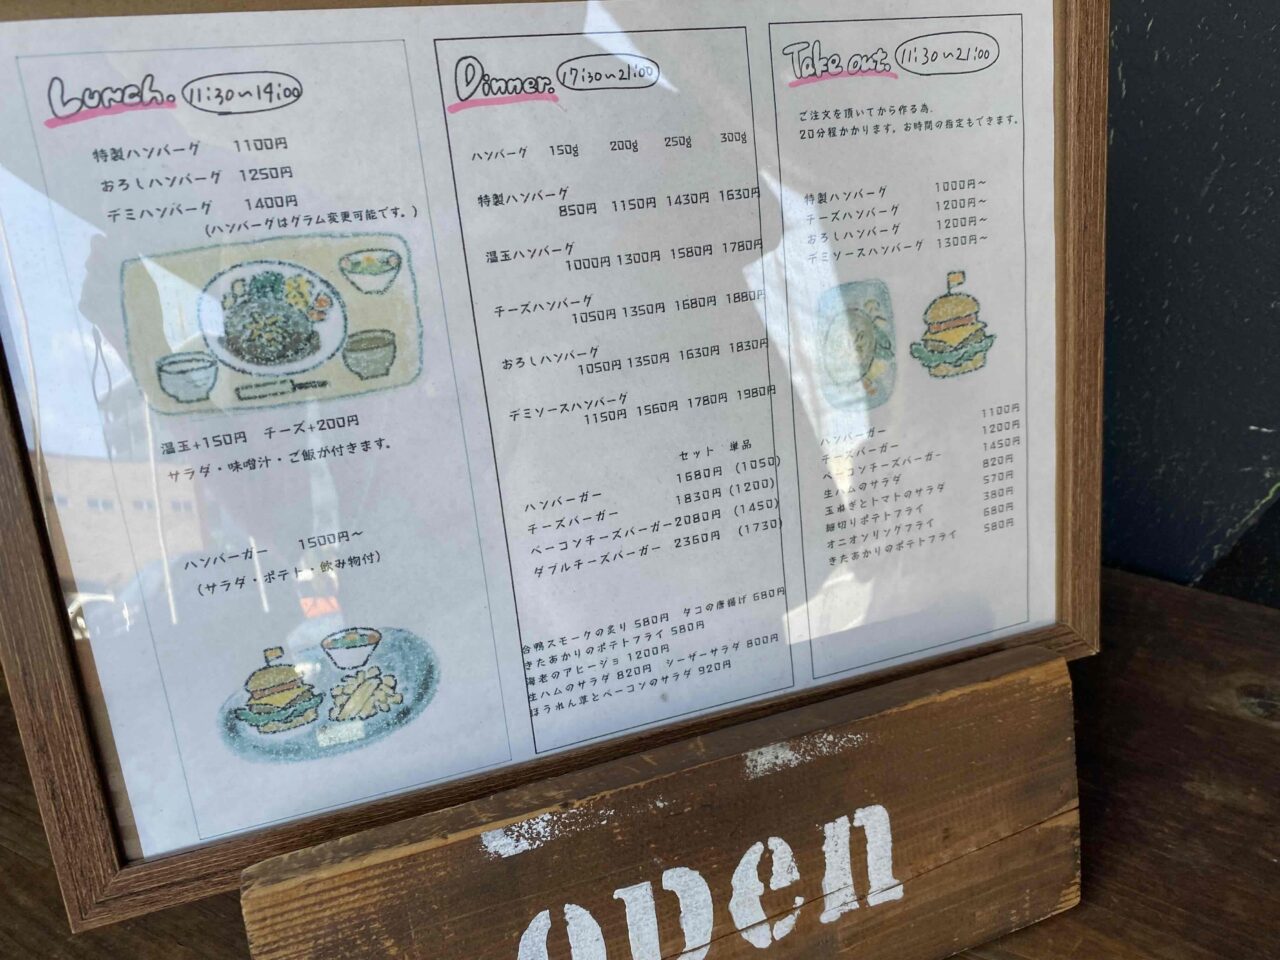 Lunch. 11:30~14:00
特製ハンバーグ 1100円
おろしハンバーグ 1250円
デミハンバーグ 1400円
(ハンバーグはグラム変更可能です。)
温玉+150円 チーズ+200円
サラダ・味噌汁・ご飯が付きます。
ハンバーガー 1500円~
(サラダ・ポテト・飲み物付)
Dinner. 17:30~21:00
ハンバーグ 150g 200g 250g 300g
特製ハンバーグ
850円 1150円 1430円 1630円
温玉ハンバーグ
1000円 1300円 1580円 1780円
チーズハンバーグ
1050円 1350円 1680円 1880円
おろしハンバーグ
1050円 1350円 1630円 1830円
デミソースハンバーグ
1150円 1560円 1780円 1980円
セット 単品
ハンバーガー 1680円 (1050)
チーズバーガー 1830円 (1200)
ベーコンチーズバーガー 2080円 (1450)
ダブルチーズバーガー 2360円 (1730)
合鴨スモークの炙り 580円 タコの唐揚げ 680円
きたあかりのポテトフライ 580円
海老のアヒージョ 1200円
生ハムのサラダ 820円 シーザーサラダ 800円
ほうれん草とベーコンのサラダ 920円
Take out. 11:30~21:00
ご注文を頂いてから作る為、
20分程かかります。お時間の指定もできます。
特製ハンバーグ 1000円~
チーズハンバーグ 1200円~
おろしハンバーグ 1200円~
デミソースハンバーグ 1300円~
ハンバーガー 1100円
チーズバーガー 1200円
ベーコンチーズバーガー 1450円
生ハムのサラダ 820円
玉ねぎとトマトのサラダ 570円
細切りポテトフライ 380円
オニオンリングフライ 680円
きたあかりのポテトフライ 580円
open